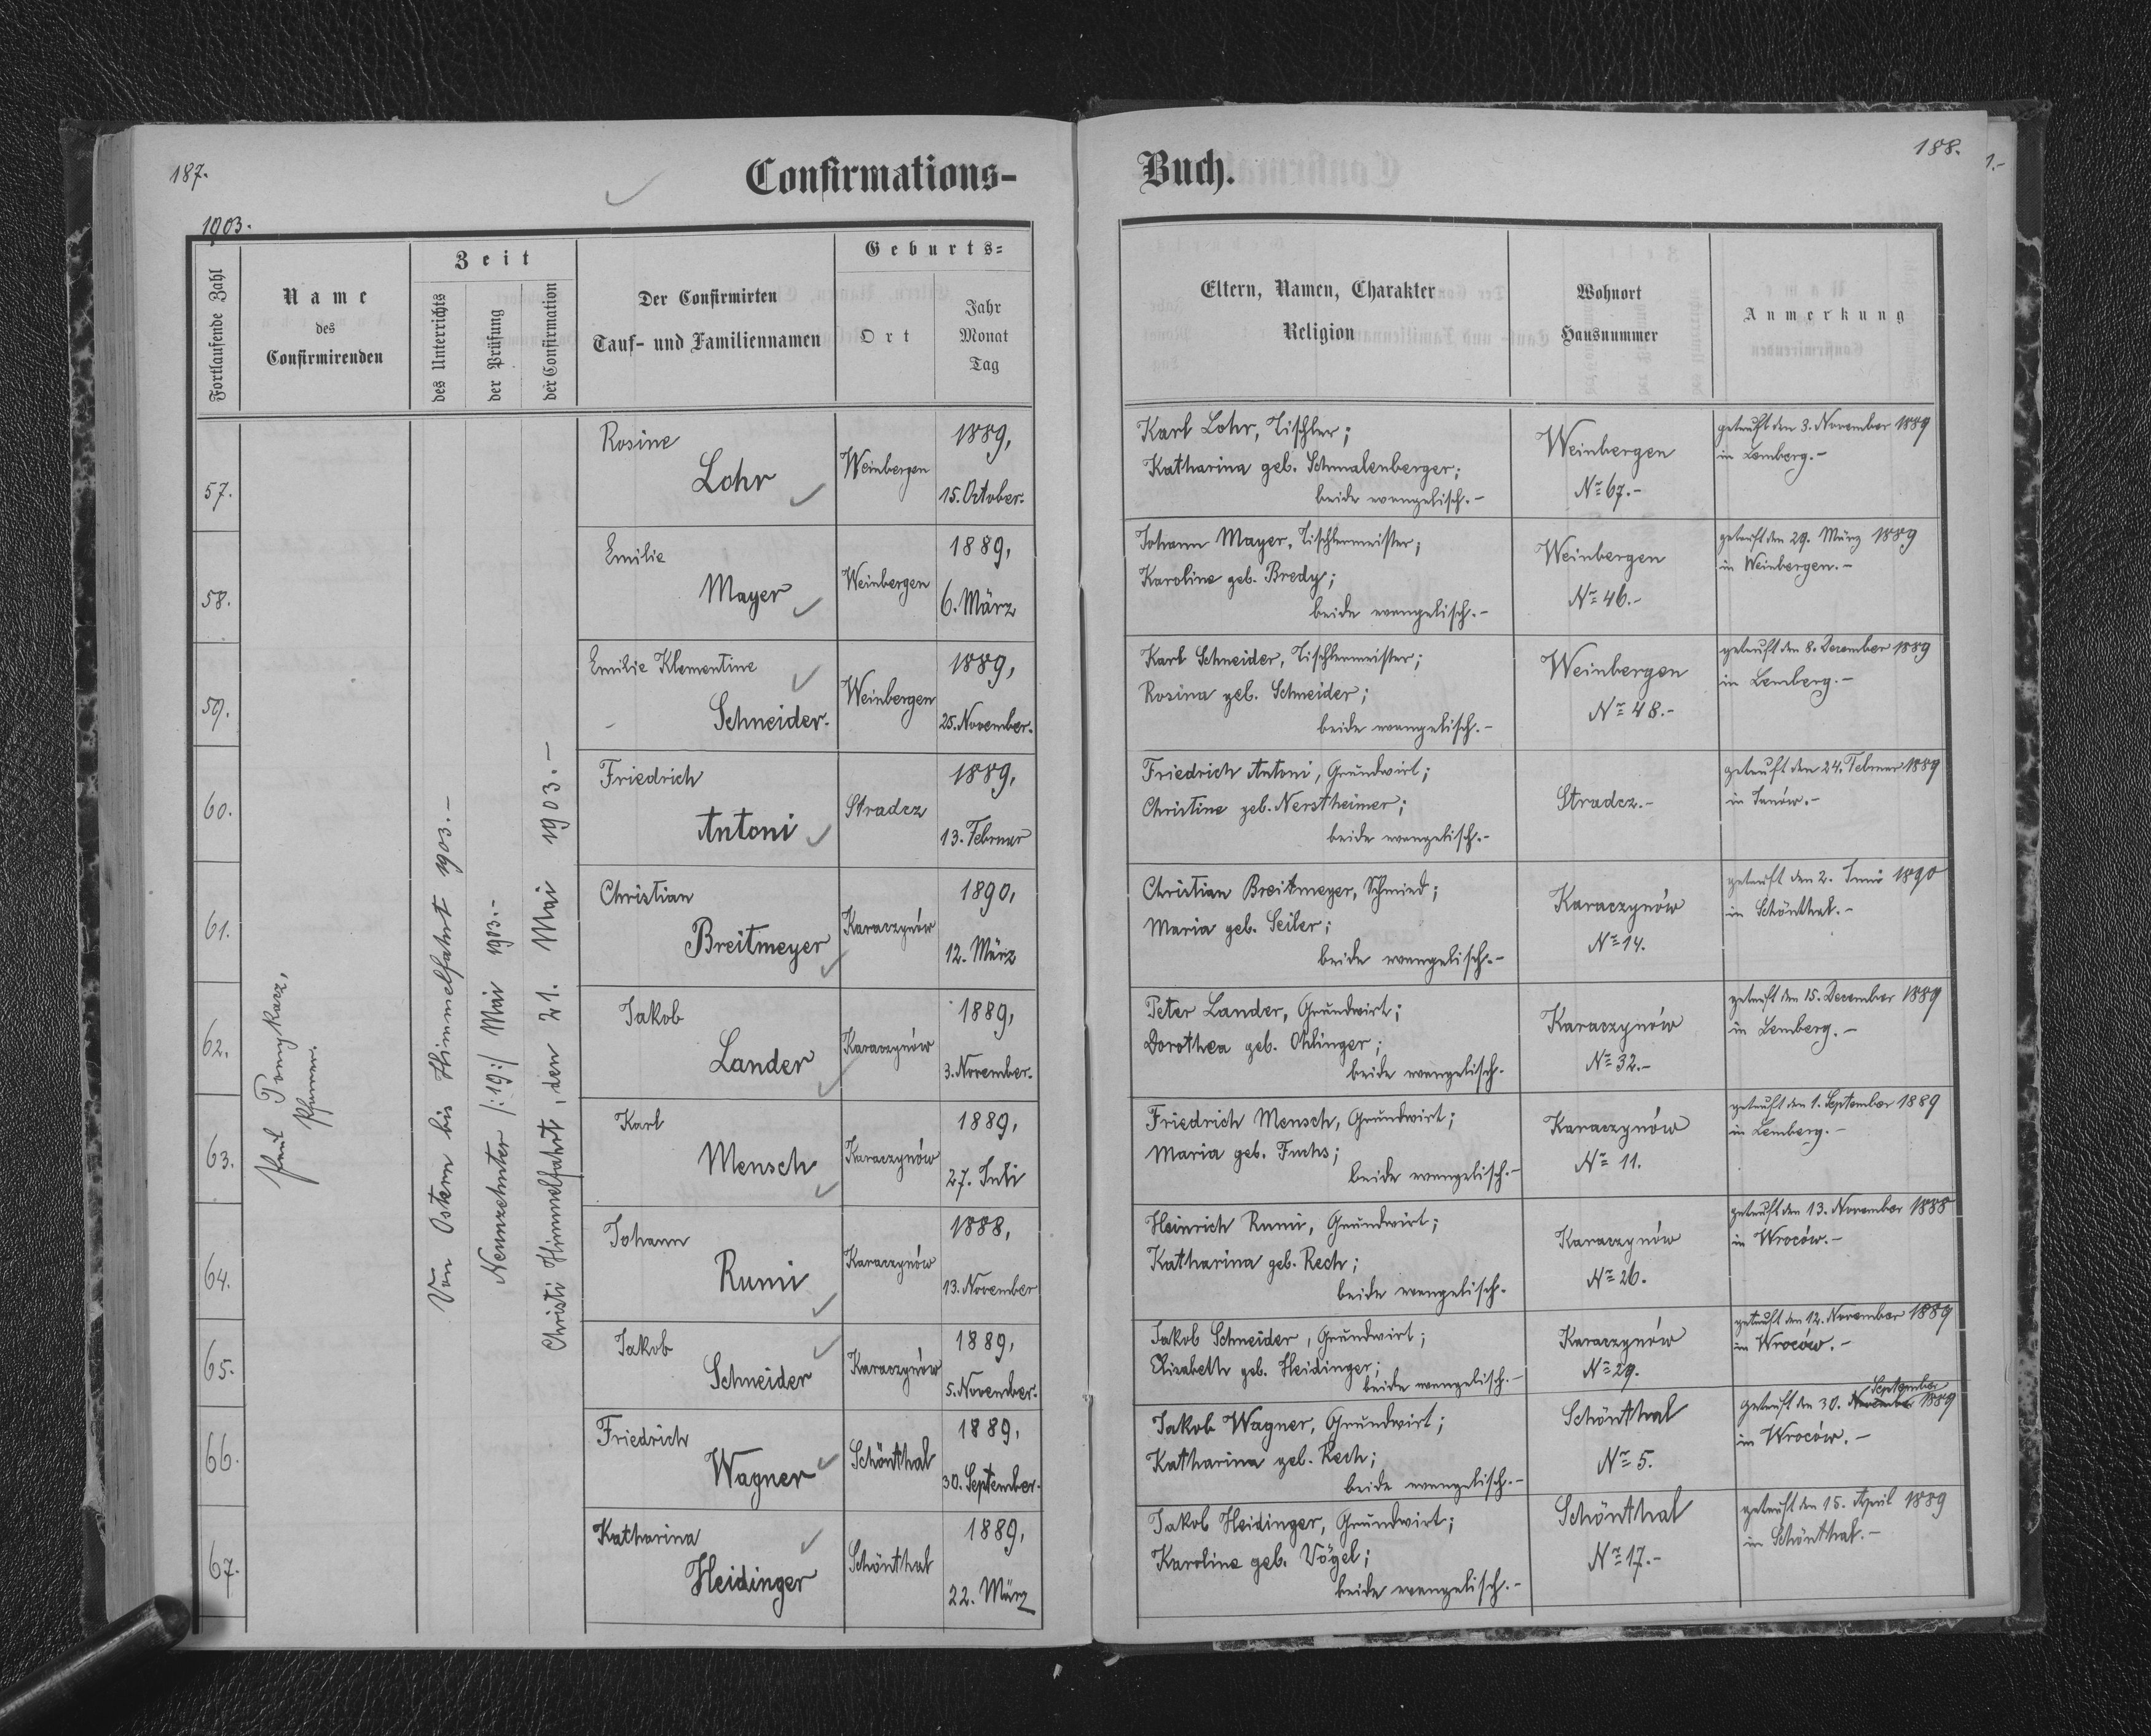 187.
Confirmations-
1903.
Fortlaufende Zahl
Name
des
Confirmirenden
Zeit
des Unterrichts
der Prüfung
der Confirmation
Der Confirmirten
Tauf- und Familiennamen
Geburts=
Ort
Jahr
Monat
Tag
Paul Pomykacz,
Pfarrer.
Von Ostern bis Himmelfahrt 1903.-
Neunzehnter /:19:/ Mai 1903.-
Christi Himmelfahrt, den 21. Mai 1903.-
57.
Rosine
Lohr
Weinbergen
1889,
15. October.
58.
Emilie
Mayer
Weinbergen
1889,
6. März
59.
Emilie Klementine
Schneider.
Weinbergen
1889,
25. November.
60.
Friedrich
Antoni
Stradcz
1889,
13. Februar
61.
Christian
Breitmeyer
Karaczynów
1890,
12. März
62.
Jakob
Lander
Karaczynów
1889,
3. November.
63.
Karl
Mensch
Karaczynów
1889,
27. Juli
64.
Johann
Rumi
Karaczynów
1888,
13. November
65.
Jakob
Schneider
Karaczynów
1889,
5. November.
66.
Friedrich
Wagner
Schönthal
1889,
30. September.
67.
Katharina
Heidinger
Schönthal
1889,
22. März
188.
1.-
Buch.
Eltern, Namen, Charakter
Religion
Wohnort
Hausnummer
Anmerkung
Karl Lohr, Tischler;
Katharina geb. Schmalenberger;
beide evangelisch.-
Weinbergen
No 67.-
getauft den 3. November 1889
in Lemberg.-
Johann Mayer, Tischlermeister;
Karoline geb. Bredy;
beide evangelisch.-
Weinbergen
No 46.-
getauft den 29. März 1889
in Weinbergen.-
Karl Schneider, Tischlermeister;
Rosina geb. Schneider;
beide evangelisch.-
Weinbergen
No 48.-
getauft den 8. Dezember 1889
in Lemberg.-
Friedrich Antoni, Grundwirt;
Christine geb. Nerstheimer;
beide evangelisch.-
Stradcz.-
getauft den 24. Februar 1889
in Janów.-
Christian Breitmeyer, Schmied;
Maria geb. Seiler;
beide evangelisch.-
Karaczynów
No 14.
getauft den 2. Juni 1890
in Schönthal.-
Peter Lander, Grundwirt;
Dorothea geb. Ohlinger;
beide evangelisch.
Karaczynów
No 32.-
getauft den 15. Dezember 1889
in Lemberg.-
Friedrich Mensch, Grundwirt;
Maria geb. Fuchs;
beide evangelisch.-
Karaczynów
No 11.
getauft den 1. September 1889
in Lemberg.-
Heinrich Rumi, Grundwirt;
Katharina geb. Rech;
beide evangelisch.
Karaczynów
No 26.
getauft den 13. November 1888
in Wroców.-
Jakob Schneider, Grundwirt;
Elisabeth geb. Heidinger;
beide evangelisch.-
Karaczynów
No 29.
getauft den 12. November 1889
in Wroców.-
Jakob Wagner, Grundwirt;
Katharina geb. Rech;
beide evangelisch.-
Schönthal
No 5.
September
getauft den 30. November 1889
in Wroców.-
Jakob Heidinger, Grundwirt;
Karoline geb. Vögel;
beide evangelisch.-
Schönthal
No 17.-
getauft den 15. April 1889
in Schönthal.-